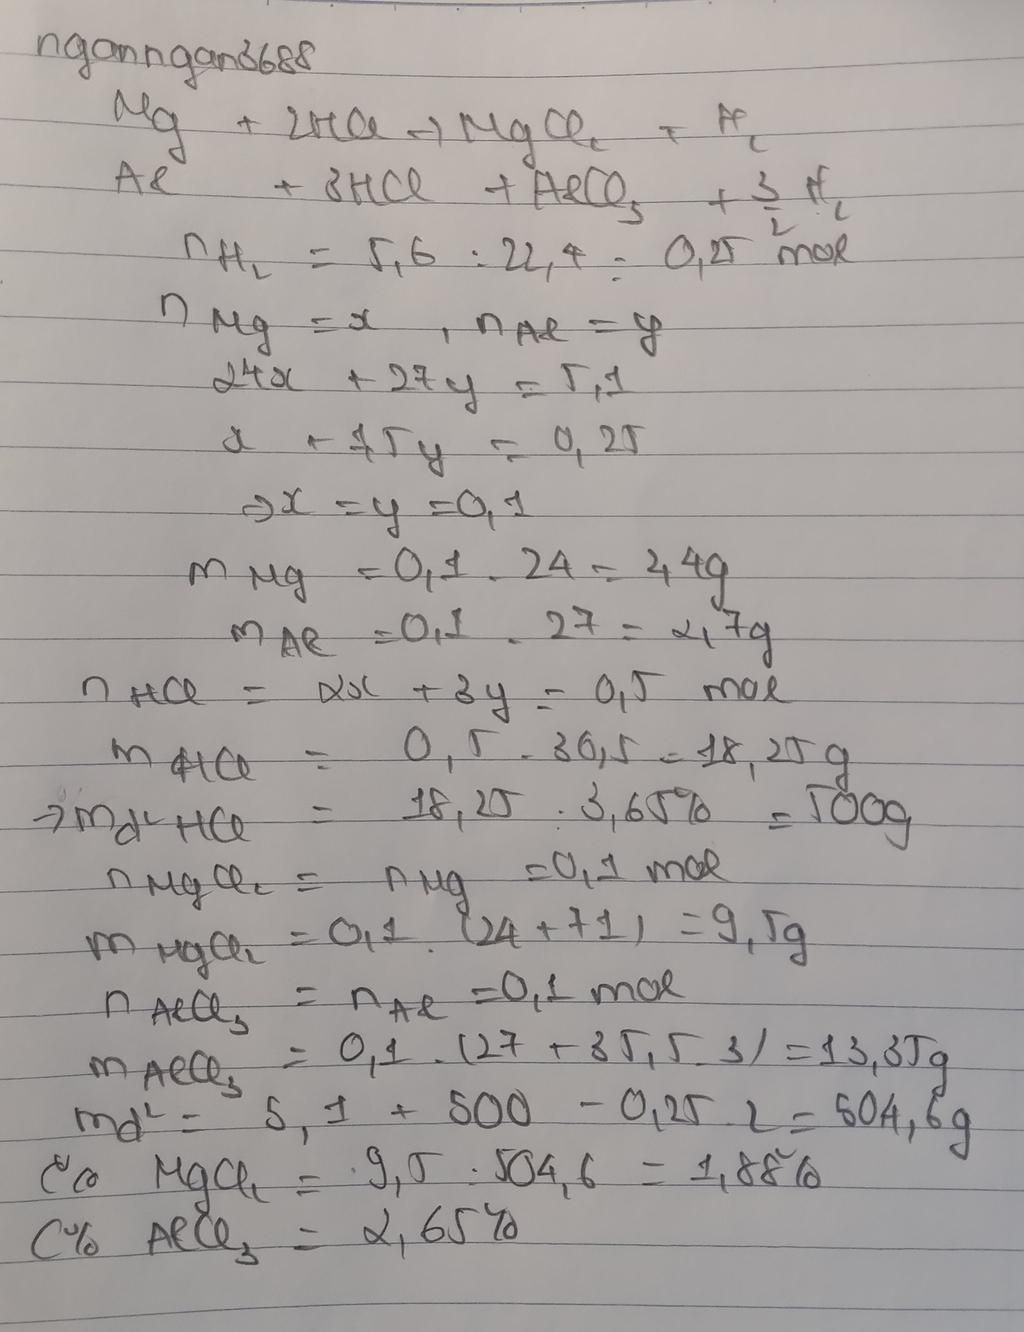 nganngan3688
Mg + 2HCl → MgCl2 + H2
Al + 3HCl → AlCl3 + 3/2 H2
nH2 = 5,6 : 22,4 = 0,25 mol
nMg = x , nAl = y
24x + 27y = 5,1
x + 1,5y = 0,25
⇒ x = y = 0,1
mMg = 0,1 . 24 = 2,4g
mAl = 0,1 . 27 = 2,7g
nHCl = 2x + 3y = 0,5 mol
mHCl = 0,5 . 36,5 = 18,25g
→ md2 HCl = 18,25 : 3,65% = 500g
nMgCl2 = nMg = 0,1 mol
mMgCl2 = 0,1 . (24 + 71) = 9,5g
nAlCl3 = nAl = 0,1 mol
mAlCl3 = 0,1 . (27 + 35,5 . 3) = 13,35g
md2 = 5,1 + 500 - 0,25 . 2 = 504,6g
C% MgCl2 = 9,5 : 504,6 = 1,88%
C% AlCl3 = 2,65%